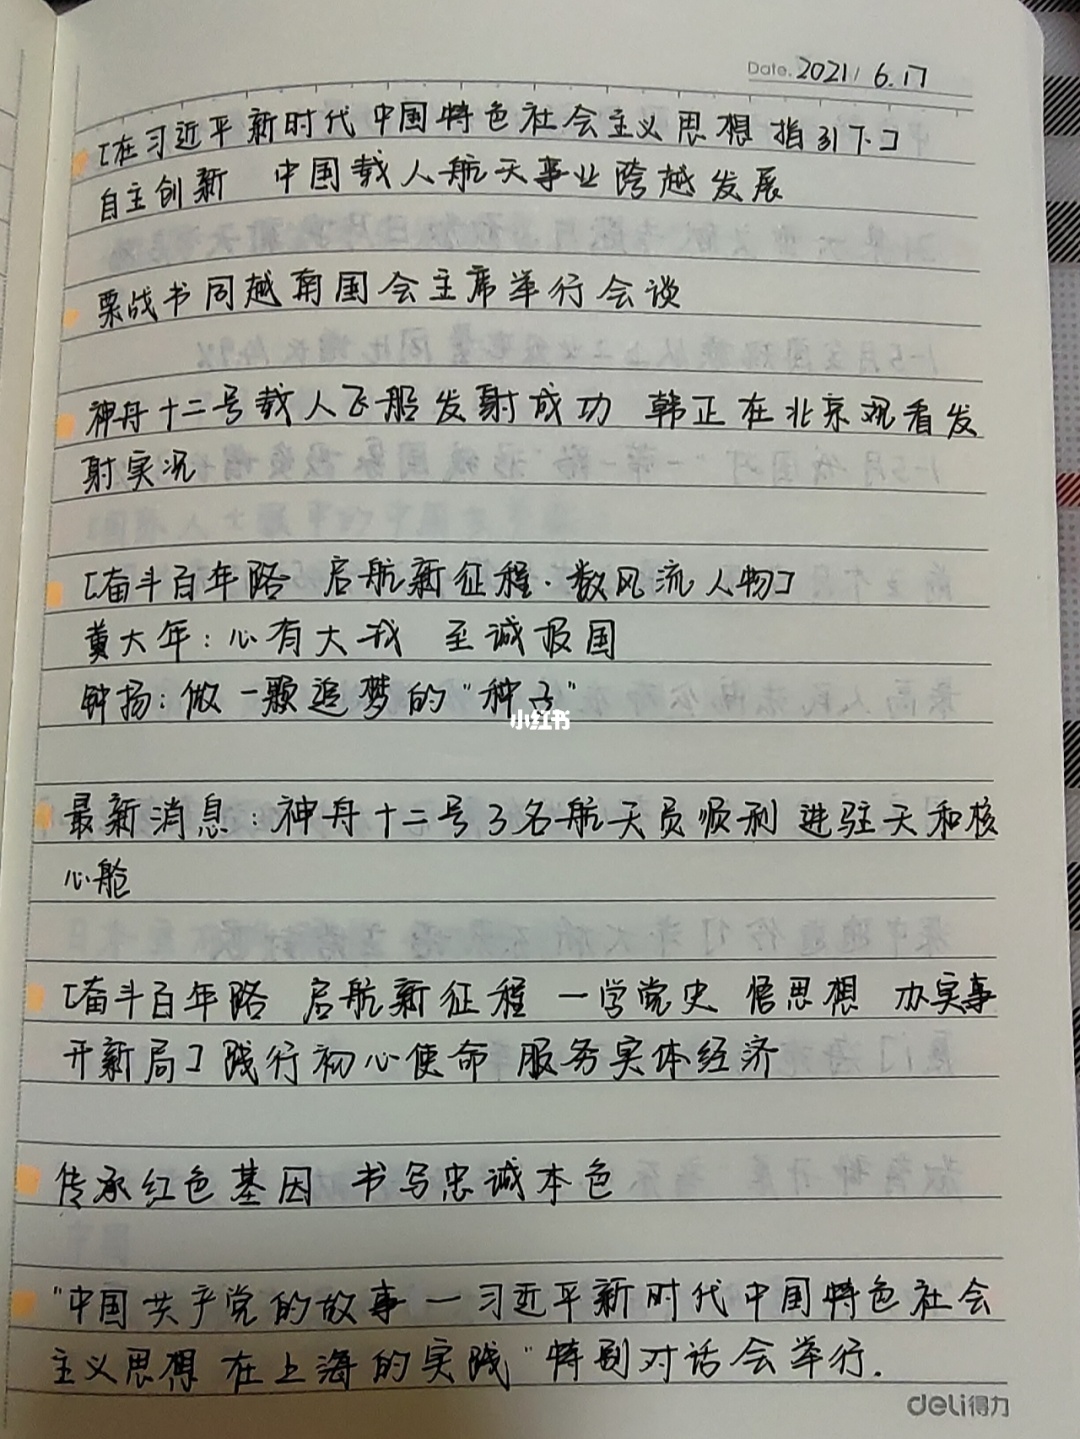 Date. 2021/ 6.17
[在习近平新时代 中国特色社会主义思想 指引下]
自主创新 中国载人航天事业跨越发展
栗战书同越南国会主席举行会谈
神舟十二号载人飞船发射成功 韩正在北京观看发
射实况
[奋斗百年路 启航新征程·数风流人物]
黄大年:心有大我 至诚报国
钟扬:做一颗追梦的"种子"
小红书
最新消息:神舟十二号3名航天员顺利进驻天和核
心舱
[奋斗百年路 启航新征程 一学党史 悟思想 办实事
开新局]践行初心使命 服务实体经济
传承红色基因 书写忠诚本色
"中国共产党的故事一习近平新时代中国特色社会
主义思想在上海的实践"特别对话会举行.
deli得力